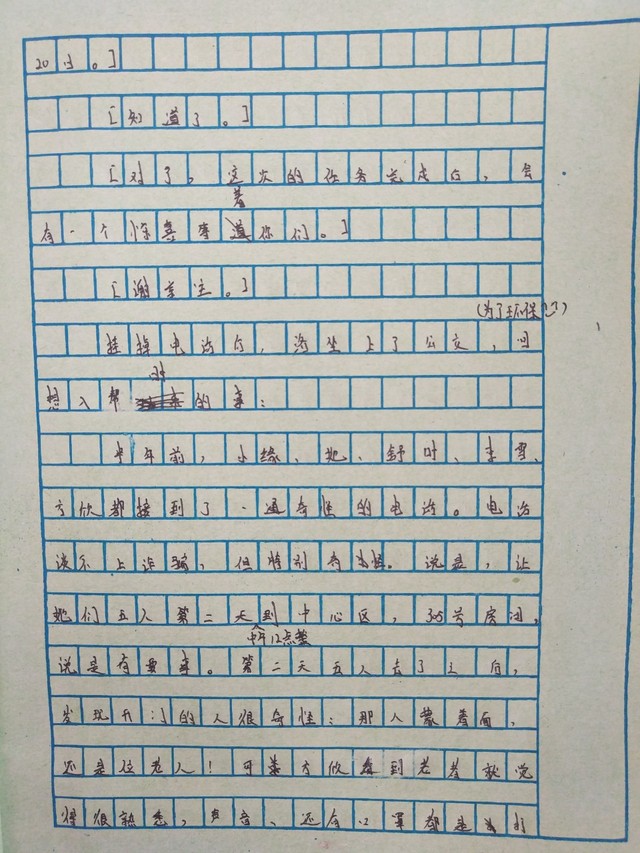 20日。]
[知道了。]
[对了，这次的任务完成后，会
着
有一个惊喜等你们。]
[谢亲主。]
(为了环保!!!)
挂掉电话后，洛坐上了公交，回
时
想入帮的事：
半年前，小缘、她、舒叶、李雪、
方欣都接到了一通奇怪的电话。电话
谈不上诈骗，但特别奇怪。说是，让
她们五人第二天到中心区，305号房间，
中午12点整
说是有要事。第二天五人去了之后，
发现开门的人很奇怪：那人蒙着面，
还是位老人！可方欣到老者就觉
得很熟悉，声音、还有口罩都是